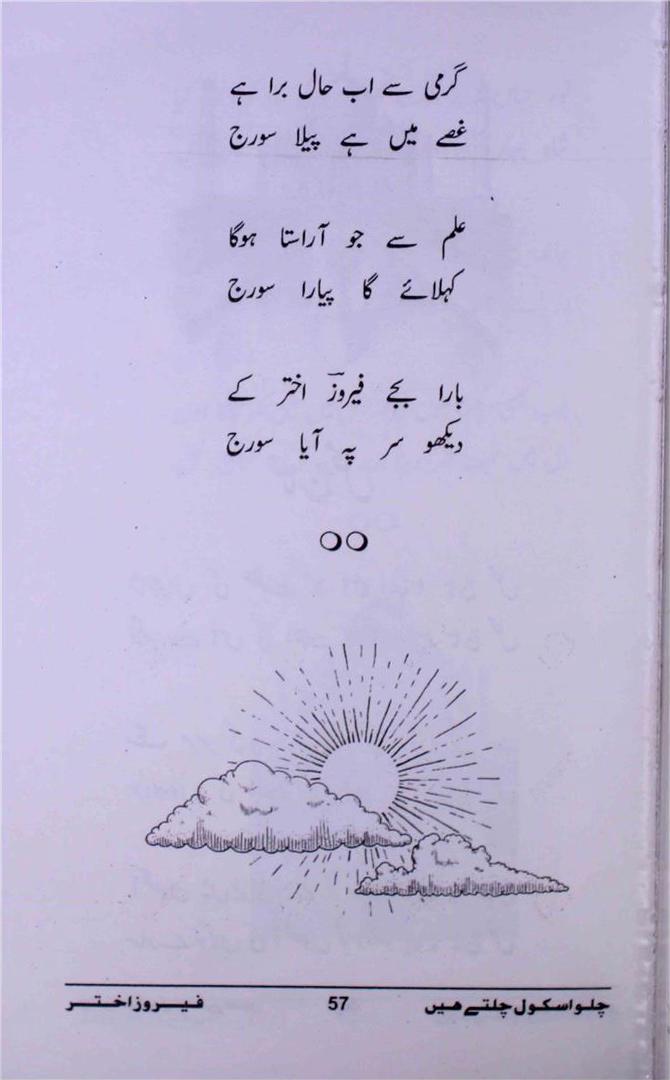 گرمی سے اب حال برا ہے
غصے میں ہے پیلا سورج
علم سے جو آراستا ہوگا
کہلائے گا پیارا سورج
بارا بجے فیروزؔ اختر کے
دیکھو سر پہ آیا سورج
چلو اسکول چلتے ہیں
57
فیروز اختر